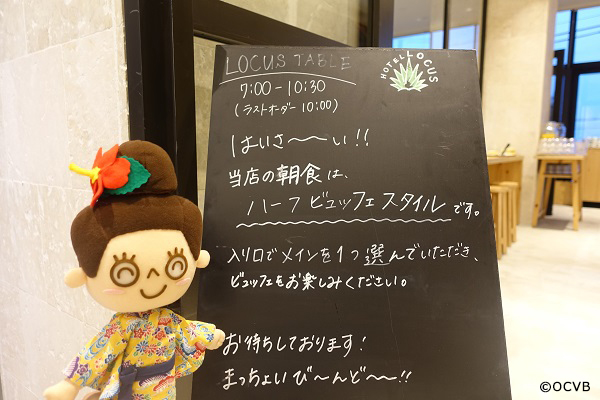 LOCUS TABLE
HOTEL LOCUS
7:00 - 10:30
(ラストオーダー 10:00)
はいさ〜〜い!!
当店の朝食は、
ハーフ ビュッフェ スタイル です。
入り口でメインを1つ選んでいただき、
ビュッフェをお楽しみください。
お待ちしております!
まっちょいび〜んど〜〜!!
©OCVB